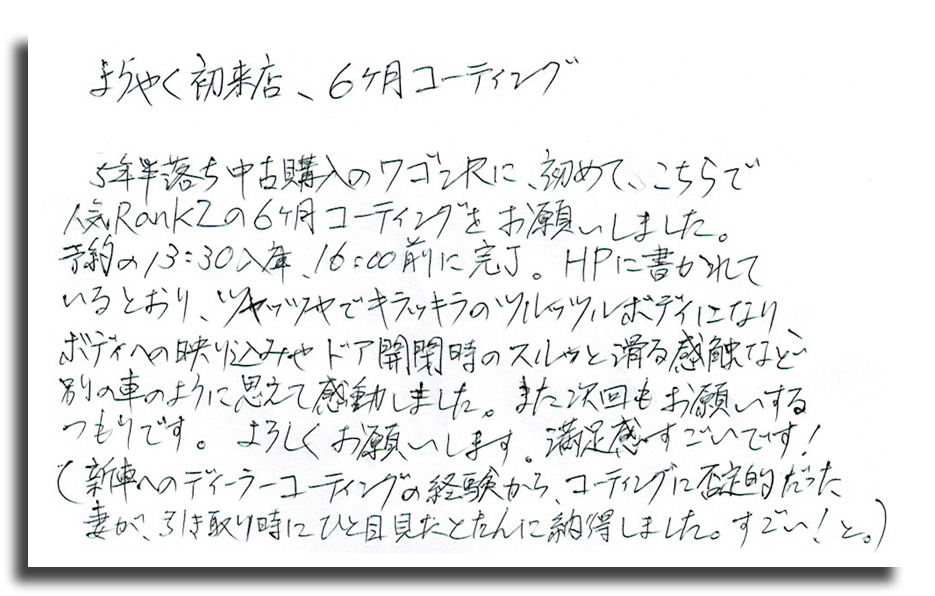 ようやく初来店、6ヶ月コーティング
5年半落ち中古購入のワゴンRに、初めて、こちらで
人気Rank2の6ヶ月コーティングをお願いしました。
予約の13:30入庫、16:00前に完了。HPに書かれて
いるとおり、ツヤッツヤでキラッキラのツルッツルボディになり、
ボディへの映り込みやドア開閉時のスルッと滑る感触など
別の車のように思えて感動しました。また次回もお願いする
つもりです。よろしくお願いします。満足感すごいです!
(新車へのディーラーコーティングの経験から、コーティングに否定的だった
妻が、引き取り時にひと目見たとたんに納得しました。すごい!と。)